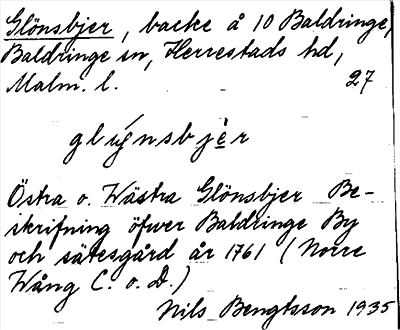 Glönsbjer, backe å 10 Baldringe,
Baldringe sn, Herrestads hd,
Malm. l. 27
Östra o. Wästra Glönsbjer Be-
skrifning öfwer Baldringe By
och sätesgård år 1761 (Norre
Wång C. o. D.)
Nils Bengtsson 1935